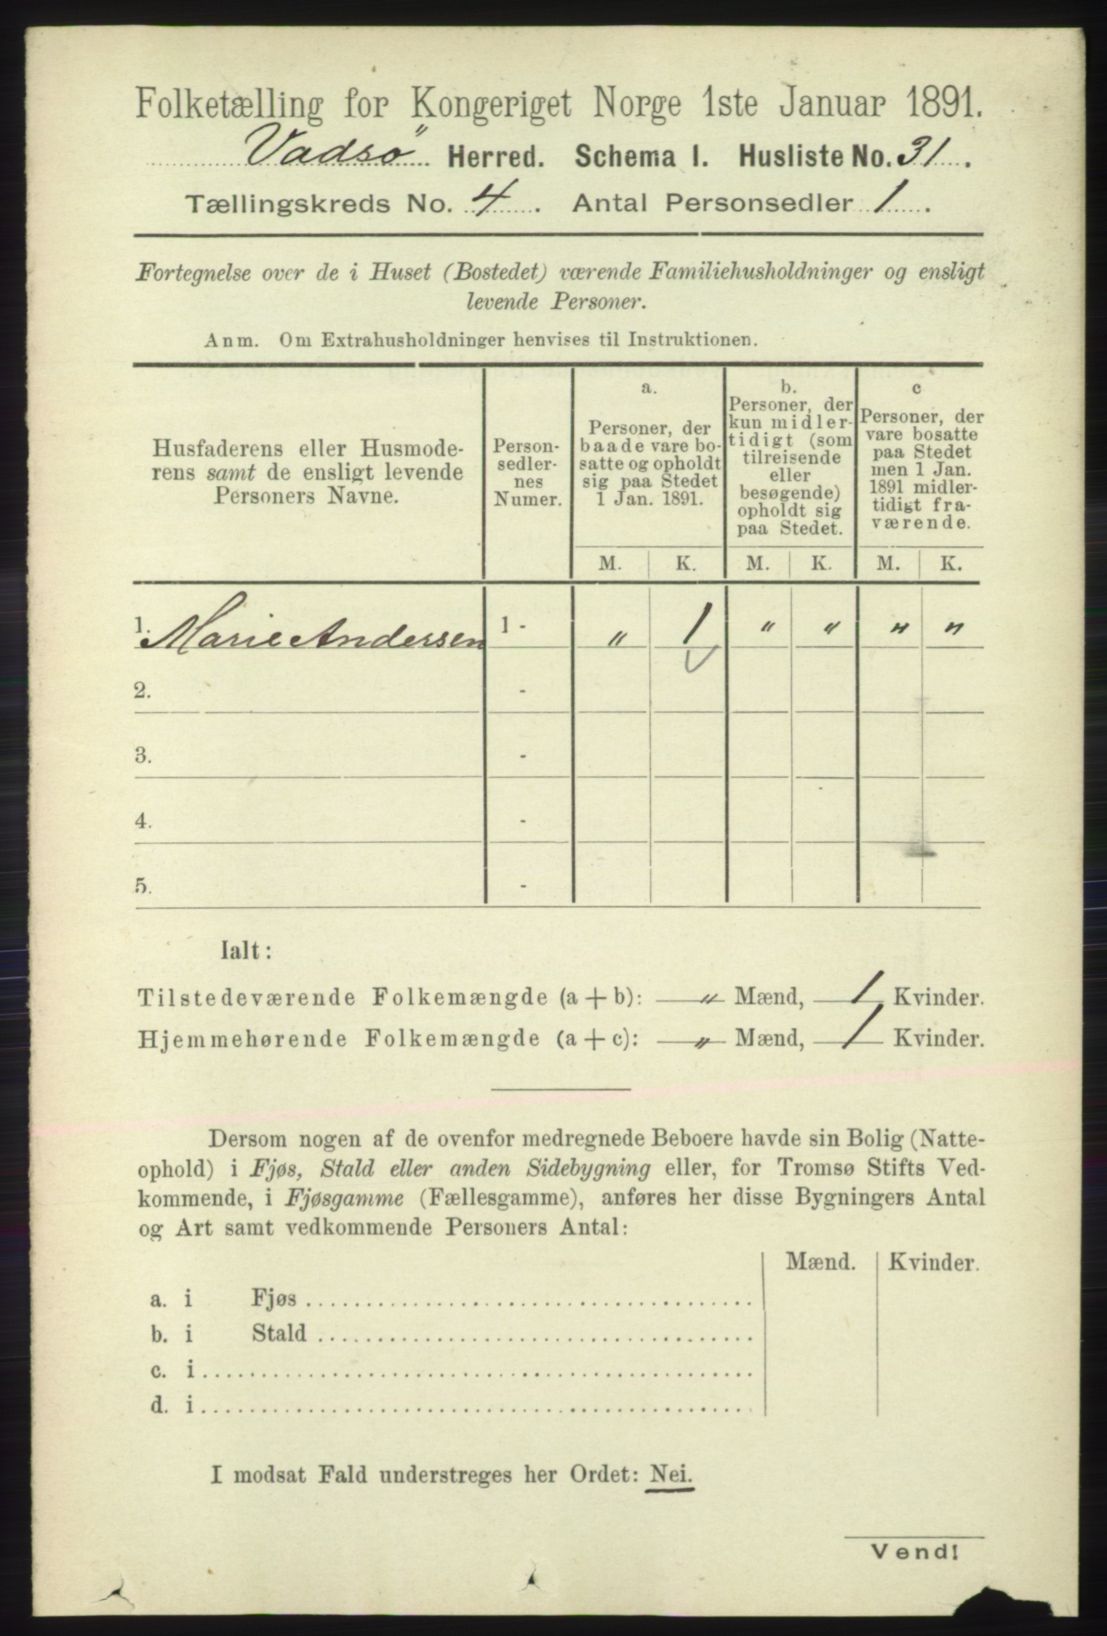 Folketælling for Kongeriget Norge 1ste Januar 1891.
Vadsö Herred. Schema I. Husliste No. 31.
Tællingskreds No. 4. Antal Personsedler 1.
Fortegnelse over de i Huset (Bostedet) værende Familiehusholdninger og ensligt
levende Personer.
Anm. Om Extrahusholdninger henvises til Instruktionen.
Husfaderens eller Husmode-
rens samt de ensligt levende
Personers Navne.
Person-
sedler-
nes
Numer.
a.
Personer, der
baade vare bo-
satte og opholdt
sig paa Stedet
1 Jan. 1891.
b.
Personer, der
kun midler-
tidigt (som
tilreisende
eller
besøgende)
opholdt sig
paa Stedet.
c
Personer, der
vare bosatte
paa Stedet
men 1 Jan.
1891 midler-
tidigt fra-
værende.
M. K. M. K. M. K.
1. Marie Andersen 1 - " 1 " " " "
2. -
3. -
4. -
5. -
Ialt:
Tilstedeværende Folkemængde (a + b): " Mænd, 1 Kvinder.
Hjemmehørende Folkemængde (a + c): " Mænd, 1 Kvinder.
Dersom nogen af de ovenfor medregnede Beboere havde sin Bolig (Natte-
ophold) i Fjøs, Stald eller anden Sidebygning eller, for Tromsø Stifts Ved-
kommende, i Fjøsgamme (Fællesgamme), anføres her disse Bygningers Antal
og Art samt vedkommende Personers Antal:
Mænd. Kvinder.
a. i Fjøs
b. i Stald
c. i
d. i
I modsat Fald understreges her Ordet: Nei.
Vend!